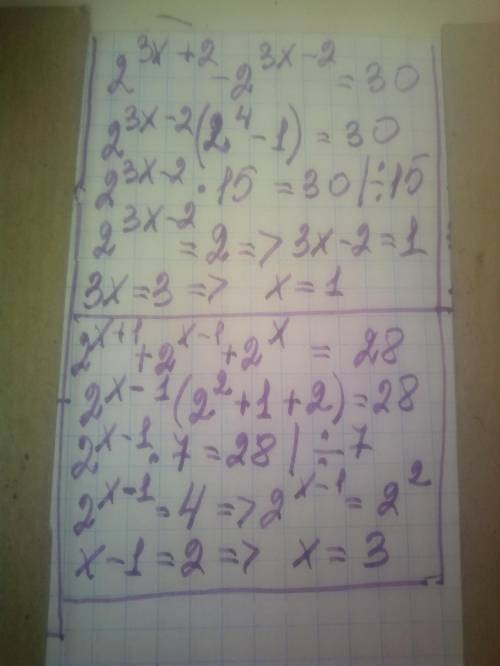 2^{3x+2} - 2^{3x-2} = 30
2^{3x-2}(2^4 - 1) = 30
2^{3x-2} · 15 = 30 | ÷15
2^{3x-2} = 2 => 3x-2 = 1
3x = 3 => x = 1
2^{x+1} + 2^{x-1} + 2^x = 28
2^{x-1}(2^2 + 1 + 2) = 28
2^{x-1} · 7 = 28 | ÷7
2^{x-1} = 4 => 2^{x-1} = 2^2
x-1 = 2 => x = 3